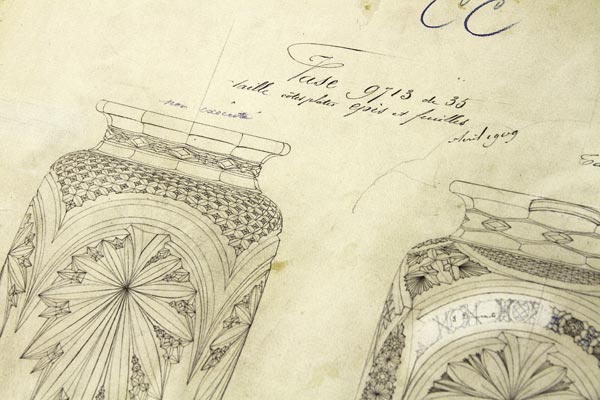 CC
Vase 9713 de 35
taille côtes plates épis et feuilles
Avril 1909
non exécuté
NON